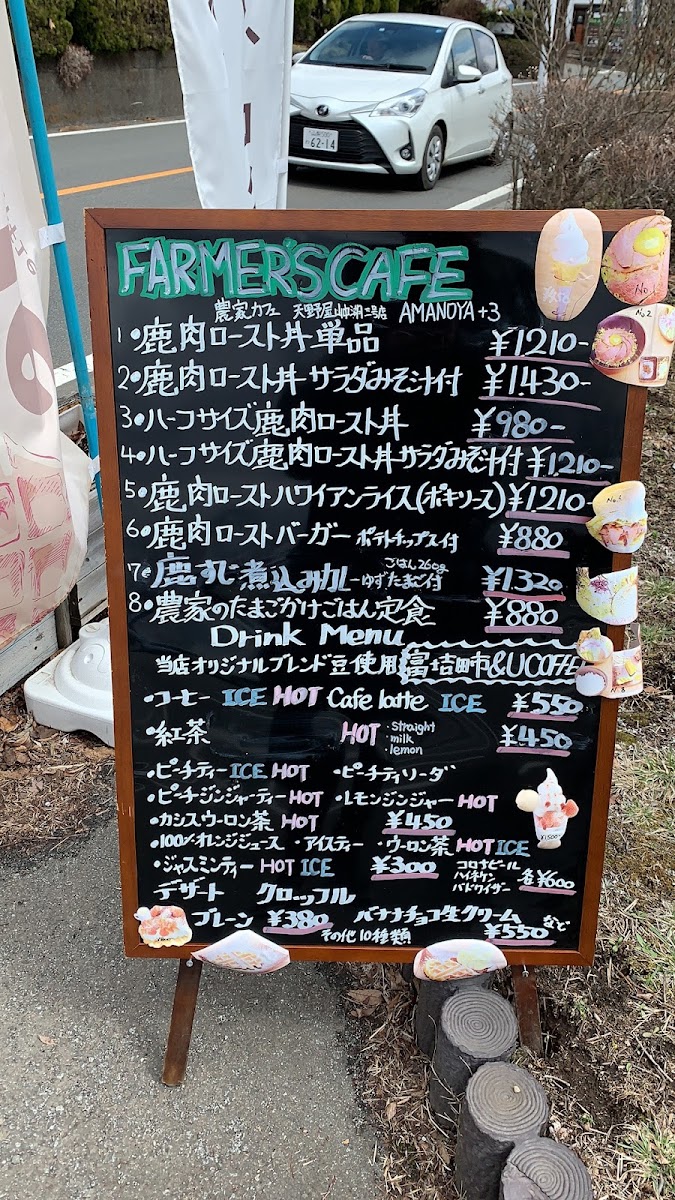 62-14
FARMER'S CAFE
農家カフェ 天野屋山中湖二号店 AMANOYA+3
1●鹿肉ロースト丼単品 ¥1,210-
2●鹿肉ロースト丼サラダみそ汁付 ¥1,430-
3●ハーフサイズ鹿肉ロースト丼 ¥980-
4●ハーフサイズ鹿肉ロースト丼サラダみそ汁付 ¥1,210-
5●鹿肉ローストハワイアンライス(ポキソース) ¥1,210-
6●鹿肉ローストバーガーポテトチップス付 ¥880
7●鹿すじ煮込みカレーゆずたまご付 ごはん260g ¥1,320
8●農家のたまごかけごはん定食 ¥880
Drink Menu
当店オリジナルブレンド豆使用 富士吉田市&U COFFEE
・コーヒー ICE HOT Cafe latte ICE ¥550
・紅茶 HOT ・straight ¥450
milk
lemon
・ピーチティー ICE HOT ・ピーチティソーダ
・ピーチジンジャーティー HOT ・レモンジンジャー HOT
・カシスウーロン茶 HOT ¥450
・100%オレンジジュース ・アイスティー ・ウーロン茶 HOT ICE
・ジャスミンティー HOT ICE ¥300
コロナビール
ハイネケン
バドワイザー 各¥600
デザート クロッフル
プレーン ¥380 バナナチョコ生クリーム など
その他10種類 ¥550
No.1
No.2